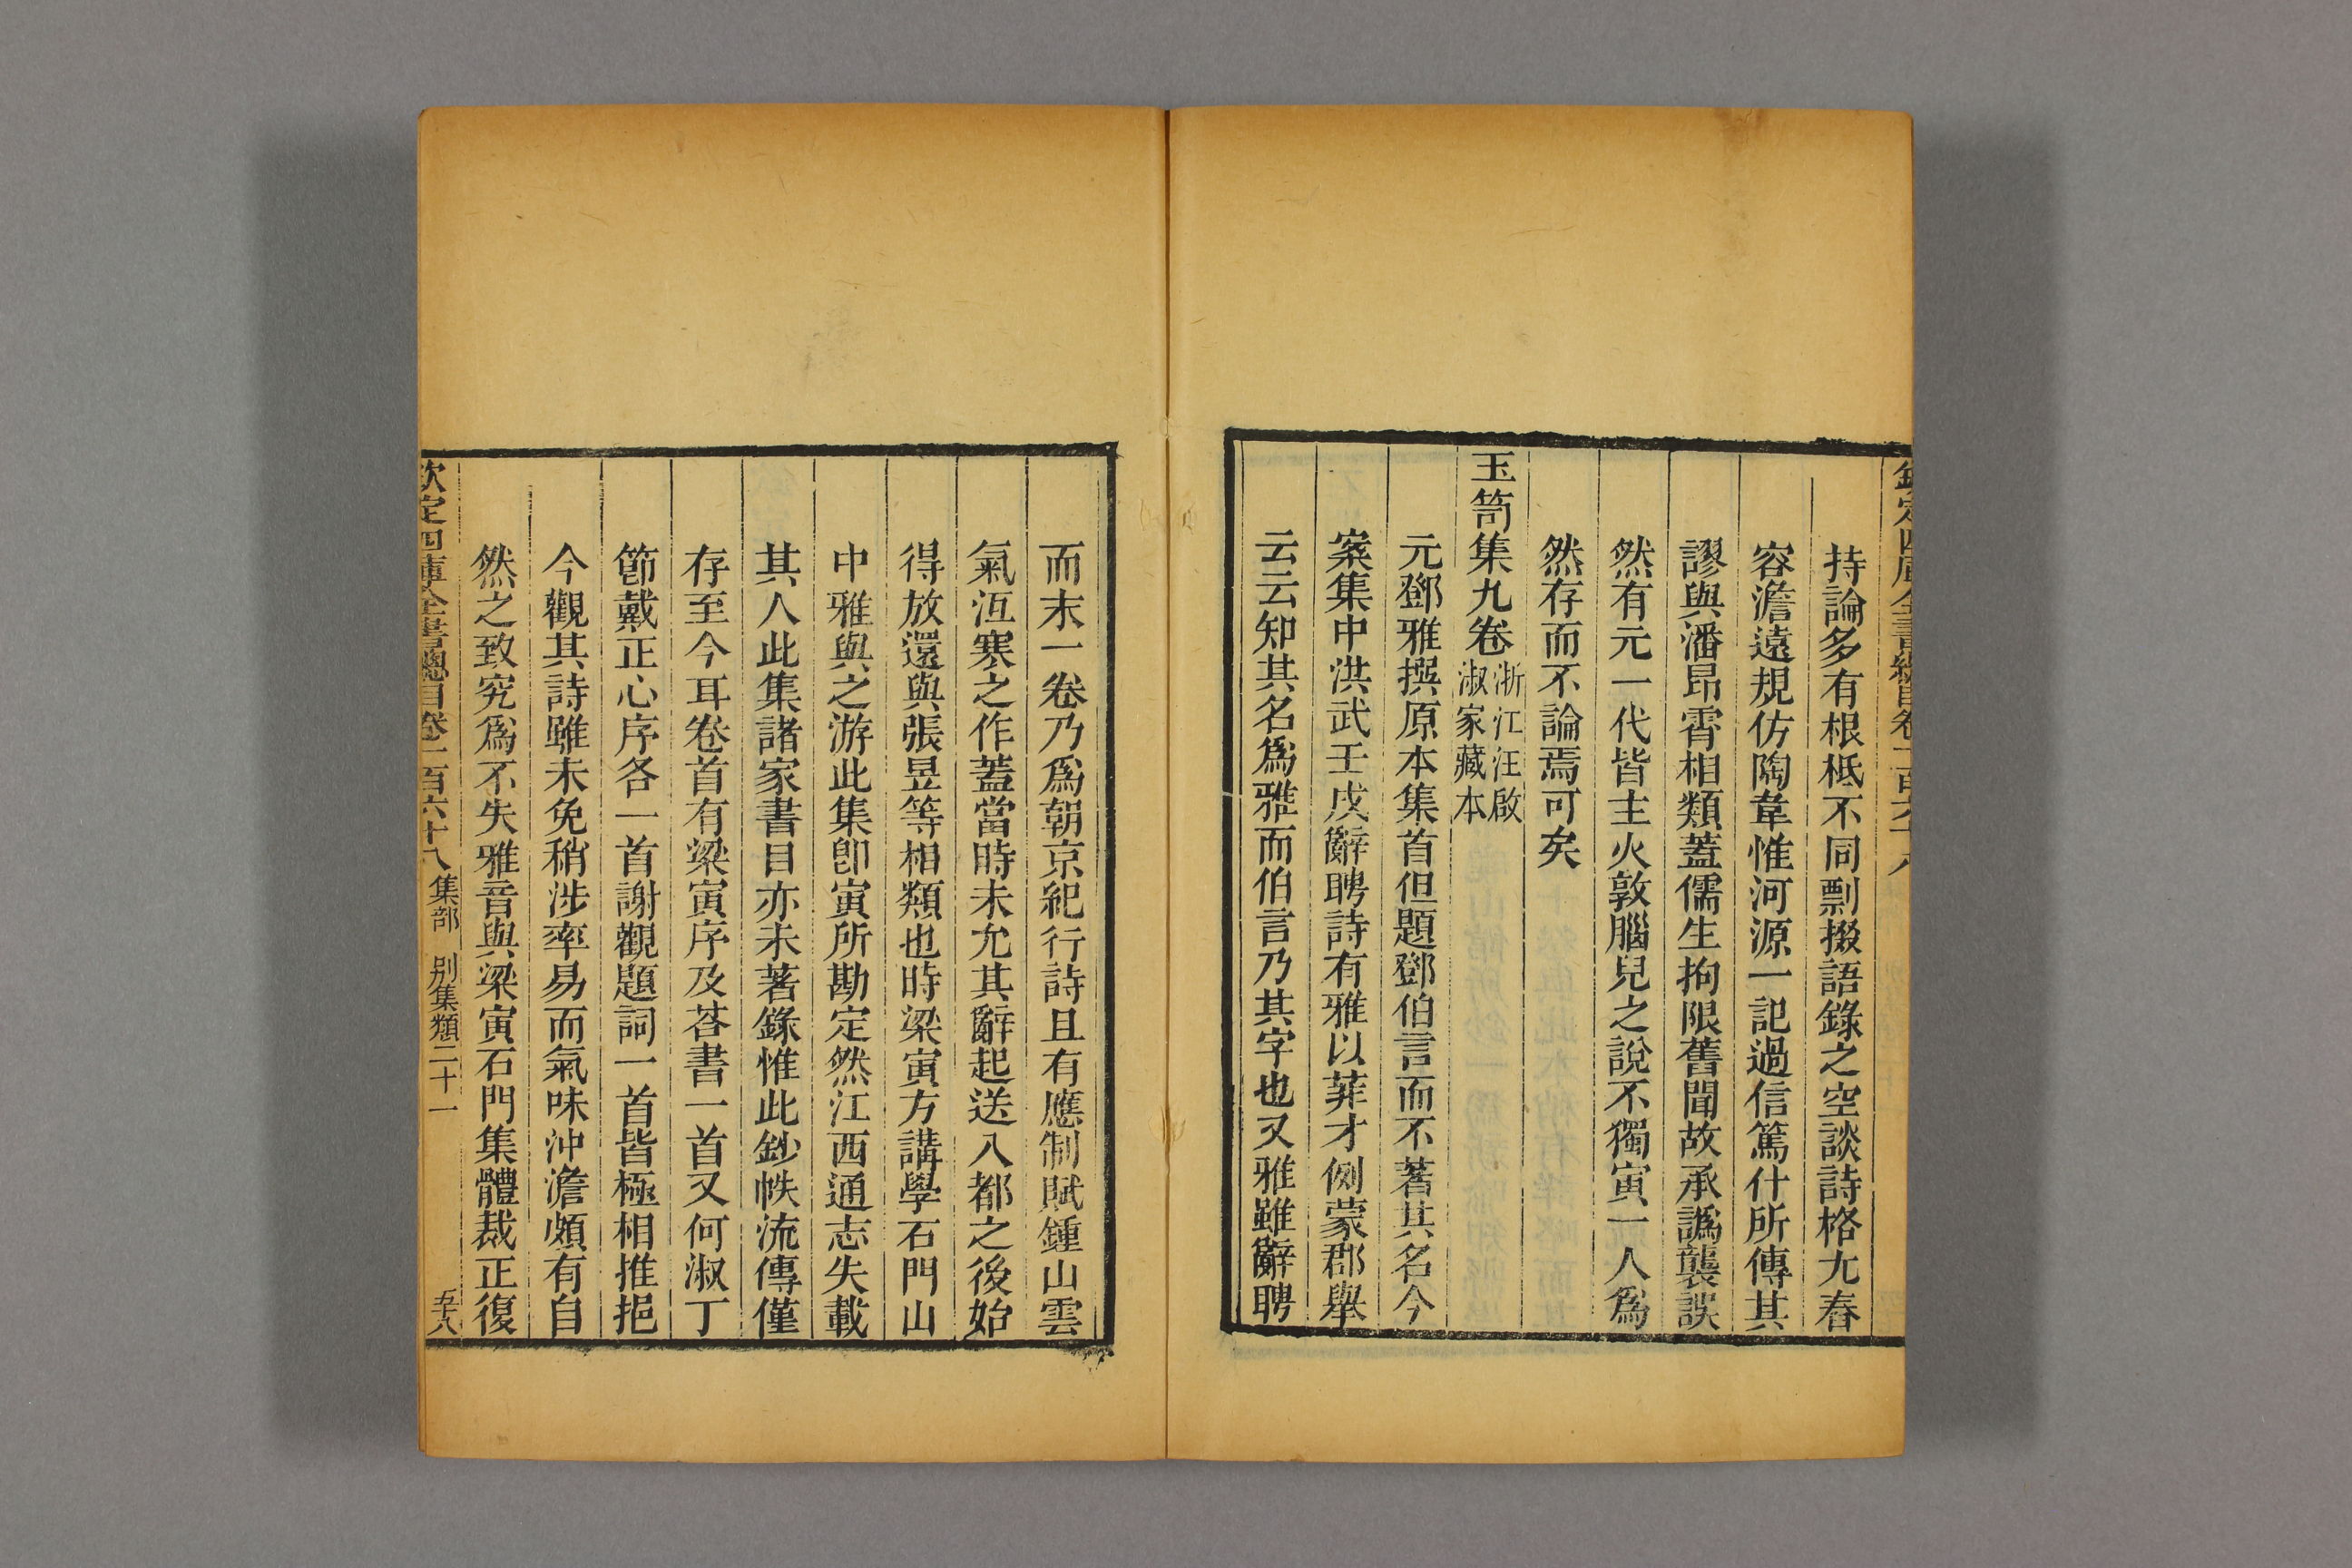 欽定四庫全書總目卷一百六十八
持論多有根柢不同剽掇語錄之空談詩格尤舂
容澹遠規仿陶韋惟河源一記過信篤什所傳其
謬與潘昂霄相類蓋儒生拘限舊聞故承譌襲誤
然有元一代皆主火敦腦兒之說不獨寅一人爲
然存而不論焉可矣
玉笥集九卷浙江汪啟淑家藏本
元鄧雅撰原本集首但題鄧伯言而不著其名今
案集中洪武壬戌辭聘詩有雅以菲才例蒙郡舉
云云知其名爲雅而伯言乃其字也又雅雖辭聘
而末一卷乃爲朝京紀行詩且有應制賦鍾山雲
氣沍寒之作蓋當時未允其辭起送入都之後始
得放還與張昱等相類也時梁寅方講學石門山
中雅與之游此集卽寅所勘定然江西通志失載
其人此集諸家書目亦未著錄惟此鈔帙流傳僅
存至今耳卷首有梁寅序及荅書一首又何淑丁
節戴正心序各一首謝觀題詞一首皆極相推挹
今觀其詩雖未免稍涉率易而氣味沖澹頗有自
然之致究爲不失雅音與梁寅石門集體裁正復
欽定四庫全書總目卷一百六十八 集部 別集類二十一 五十八